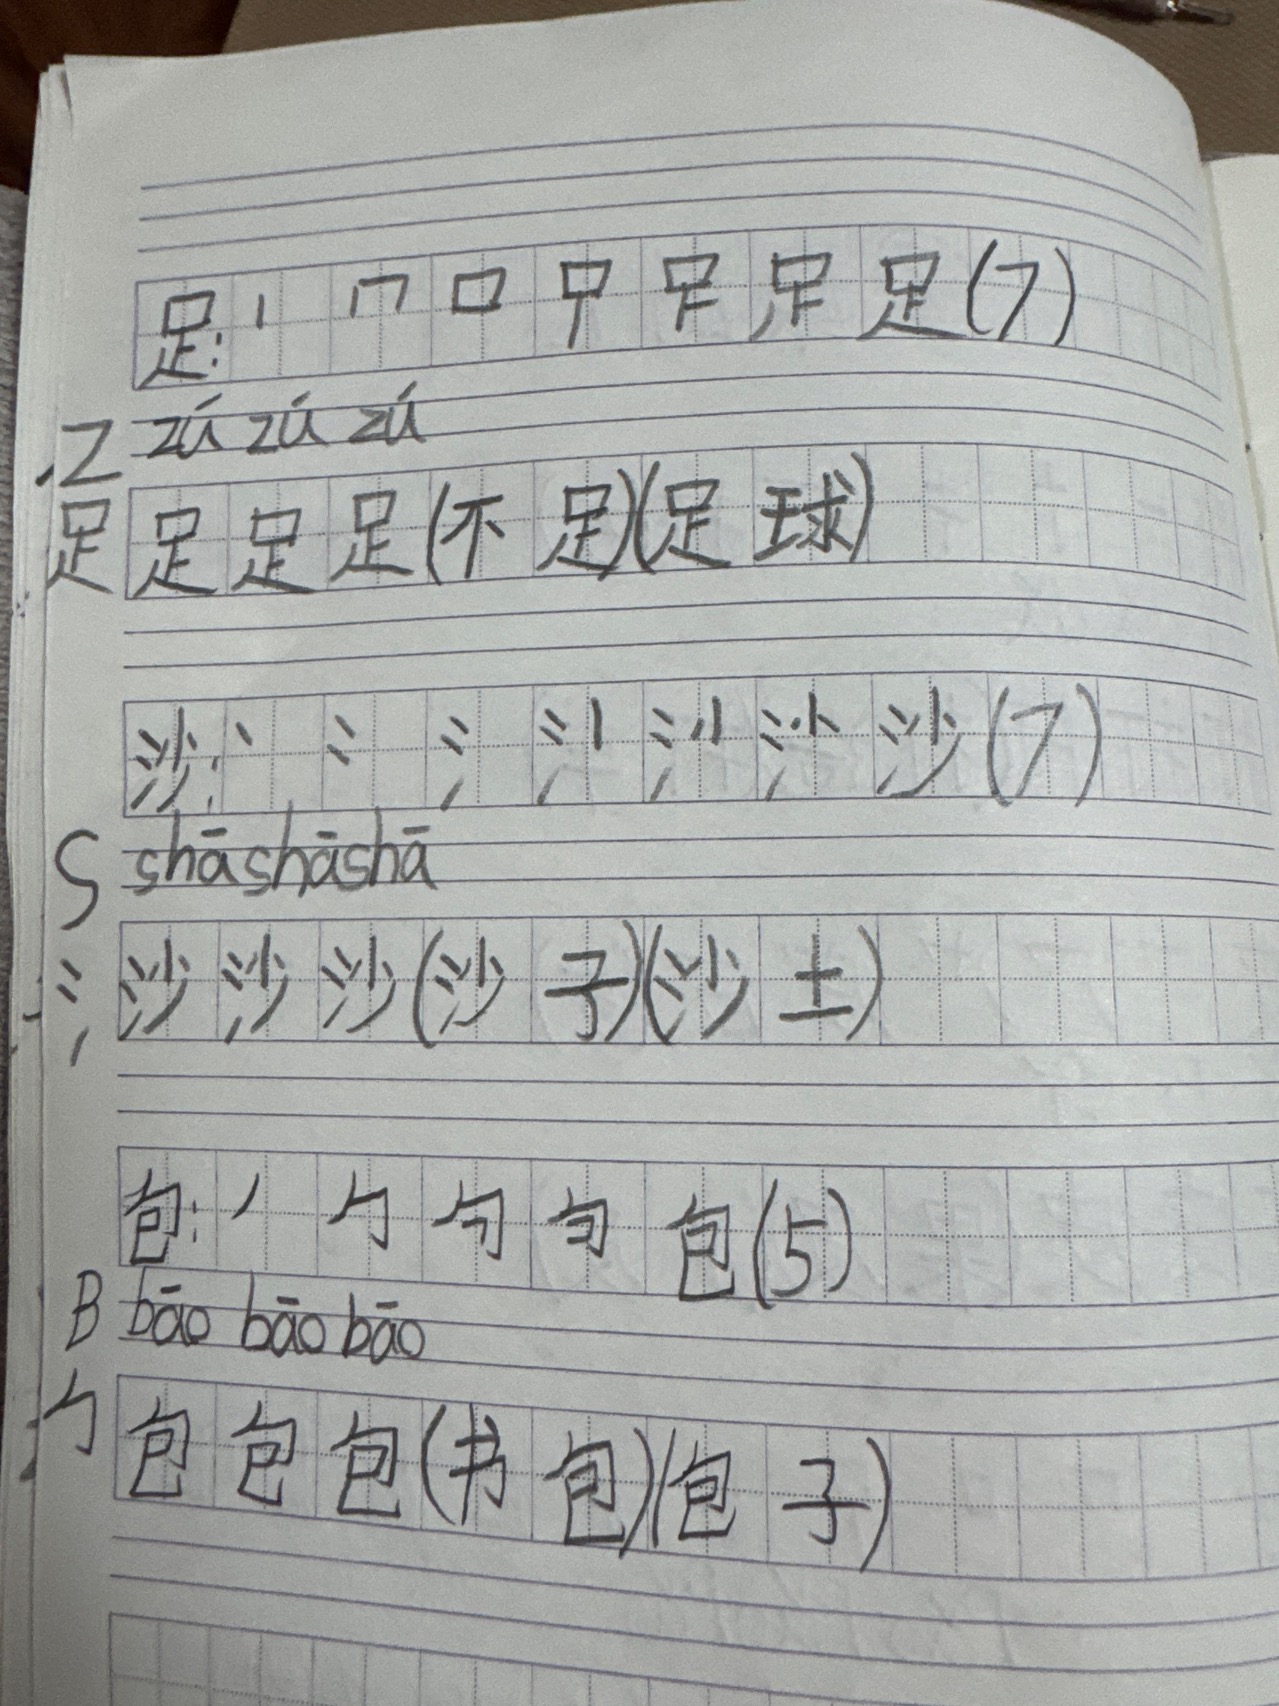 足: 丨 𠃍 口 𠯮 足 足 足 (7)
Z zú zú zú
足 足 足 足 (不足) (足球)
沙: 丶 冫 氵 沙 (7)
S shā shā shā
氵 沙 沙 沙 (沙子) (沙土)
包: 丿 勹 包 (5)
B bāo bāo bāo
勹 包 包 包 (书包) (包子)